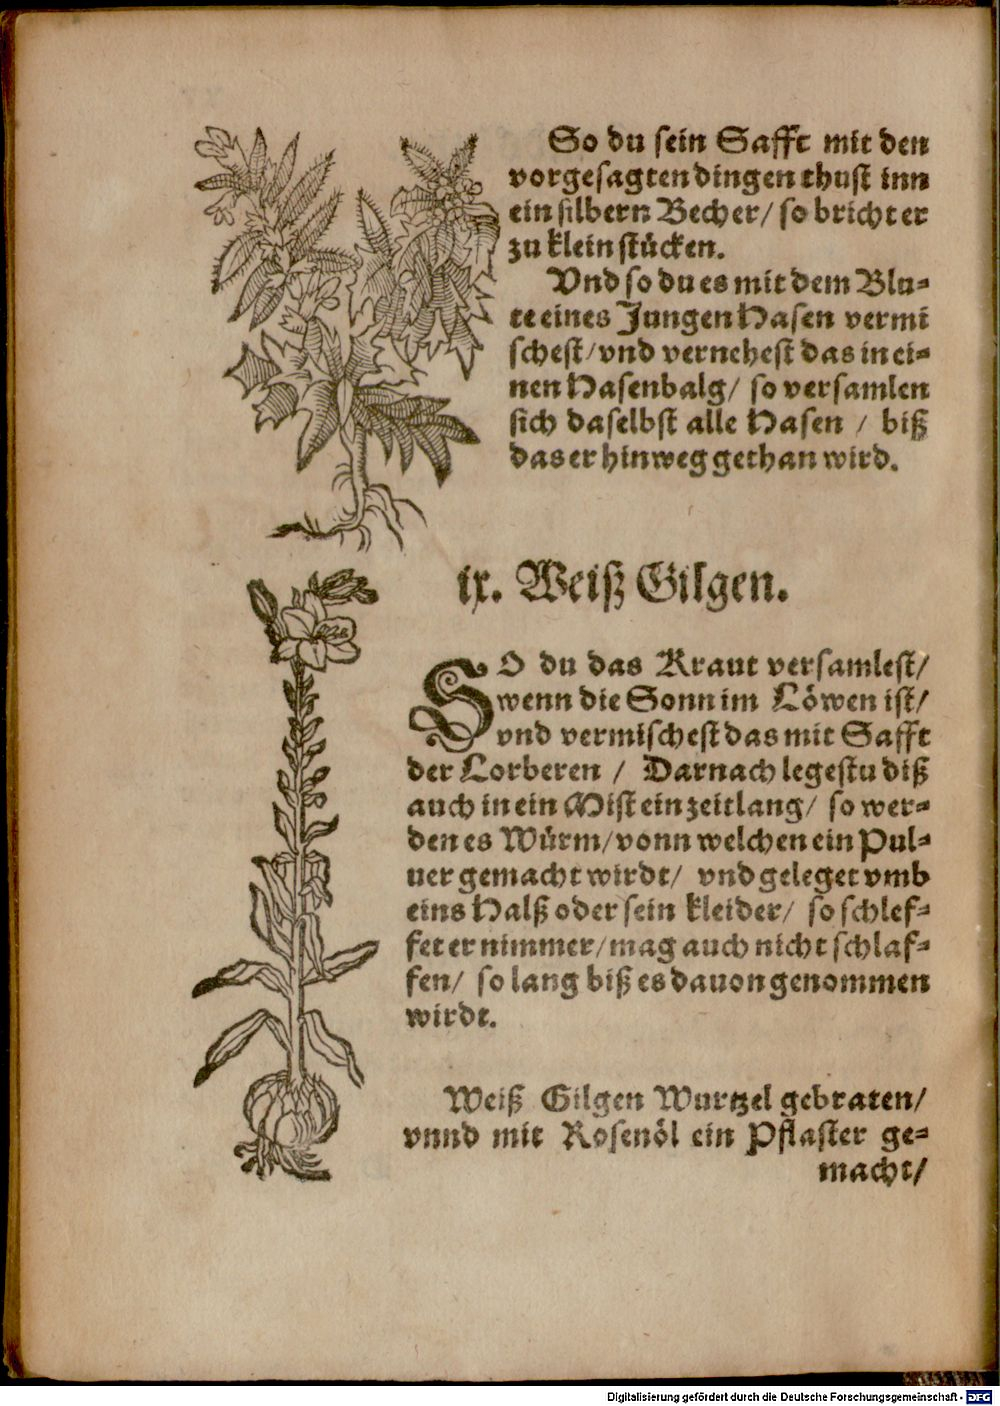 So du sein Safft mit den
vorgesagten dingen thust inn
ein silbern Becher/ so bricht er
zu klein stücken.
Vnd so du es mit dem Blu-
te eines Jungen Hasen vermi
schest/ vnd vernehest das in ei-
nen Hasenbalg/ so versamlen
sich daselbst alle Hasen / biß
das er hinweg gethan wird.
ix. Weiß Gilgen.
SO du das Kraut versamlest/
wenn die Sonn im Löwen ist/
vnd vermischest das mit Safft
der Lorberen / Darnach legestu diß
auch in ein Mist ein zeitlang/ so wer-
den es Würm/ vonn welchen ein Pul-
uer gemacht wirdt/ vnd geleget vmb
eins Halß oder sein kleider/ so schlef-
fet er nimmer/ mag auch nicht schlaf-
fen/ so lang biß es dauon genommen
wirdt.
Weiß Gilgen Wurtzel gebraten/
vnnd mit Rosenöl ein Pflaster ge-
macht/
Digitalisierung gefördert durch die Deutsche Forschungsgemeinschaft - DFG